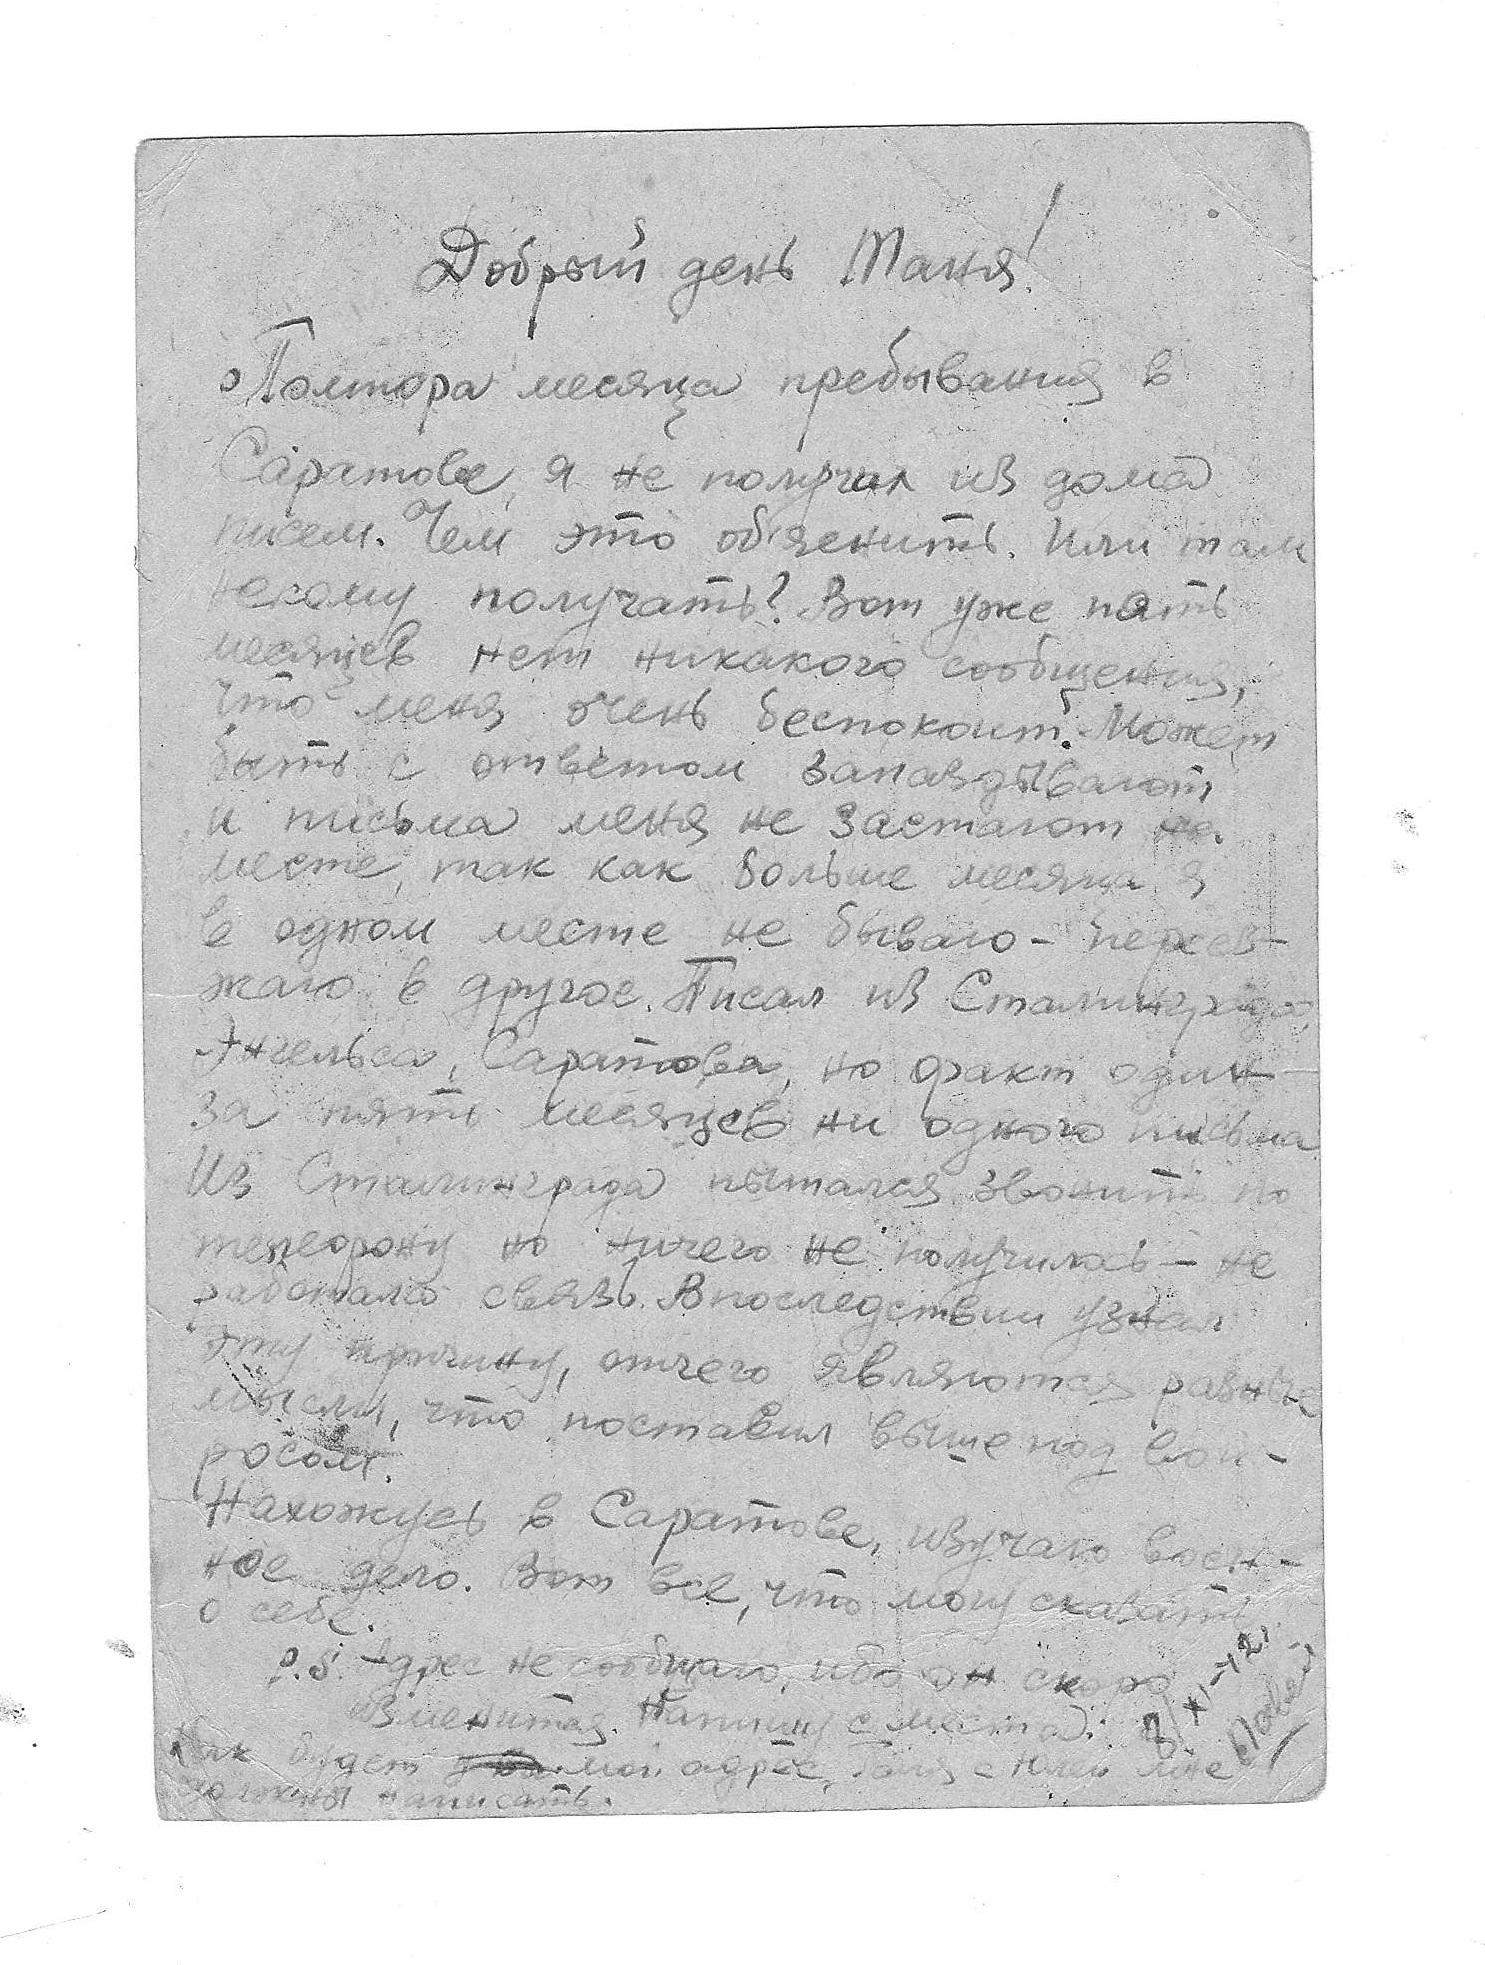 Добрый день Таня!
Полтора месяца пребывания в
Саратове, я не получил из дома
писем. Чем это обяснить. Или там
некому получать? Вот уже пять
месяцев нет никакого сообщения,
что меня очень беспокоит. Может
быть с ответом запаздывают
и письма меня не застают на
месте, так как больше месяца я
в одном месте не бываю - переез-
жаю в другое. Писал из Сталинграда,
Энгельса, Саратова, но факт один -
за пять месяцев ни одного письма
Из Сталинграда пытался звонить по
телефону но ничего не получилось - не
работала связь. Впоследствии узнал
эту причину, отчего являются разные
мысли, что поставил выше под воп-
росом.
Нахожусь в Саратове, изучаю воен-
ное дело. Вот все, что могу сказать
о себе.
P.S. Адрес не сообщаю, ибо он скоро
изменится. Напишу с места.
Как будет мой адрес, Галя с Юлей мне
должны написать.
Павел